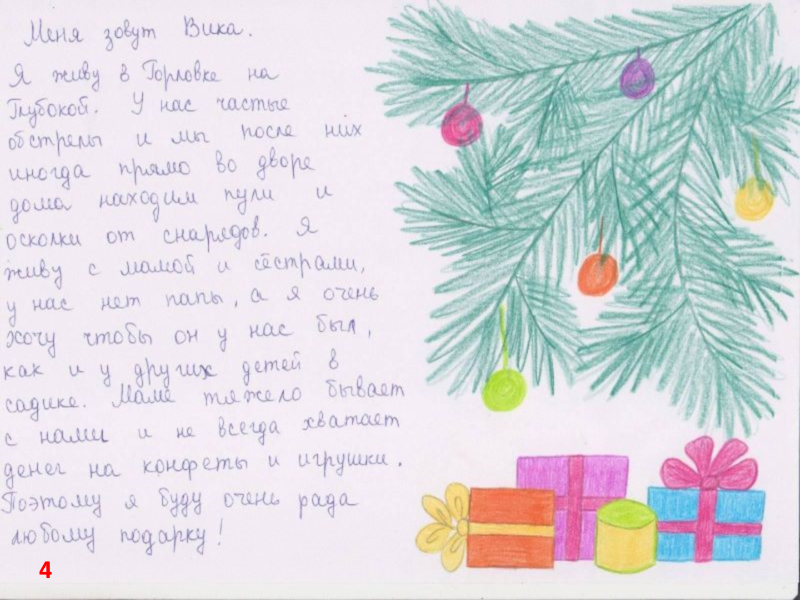 Меня зовут Вика.
Я живу в Горловке на
Глубокой. У нас частые
обстрелы и мы после них
иногда прямо во дворе
дома находим пули и
осколки от снарядов. Я
живу с мамой и сёстрами,
у нас нет папы, а я очень
хочу чтобы он у нас был,
как и у других детей в
садике. Маме тяжело бывает
с нами и не всегда хватает
денег на конфеты и игрушки.
Поэтому я буду очень рада
любому подарку!
4